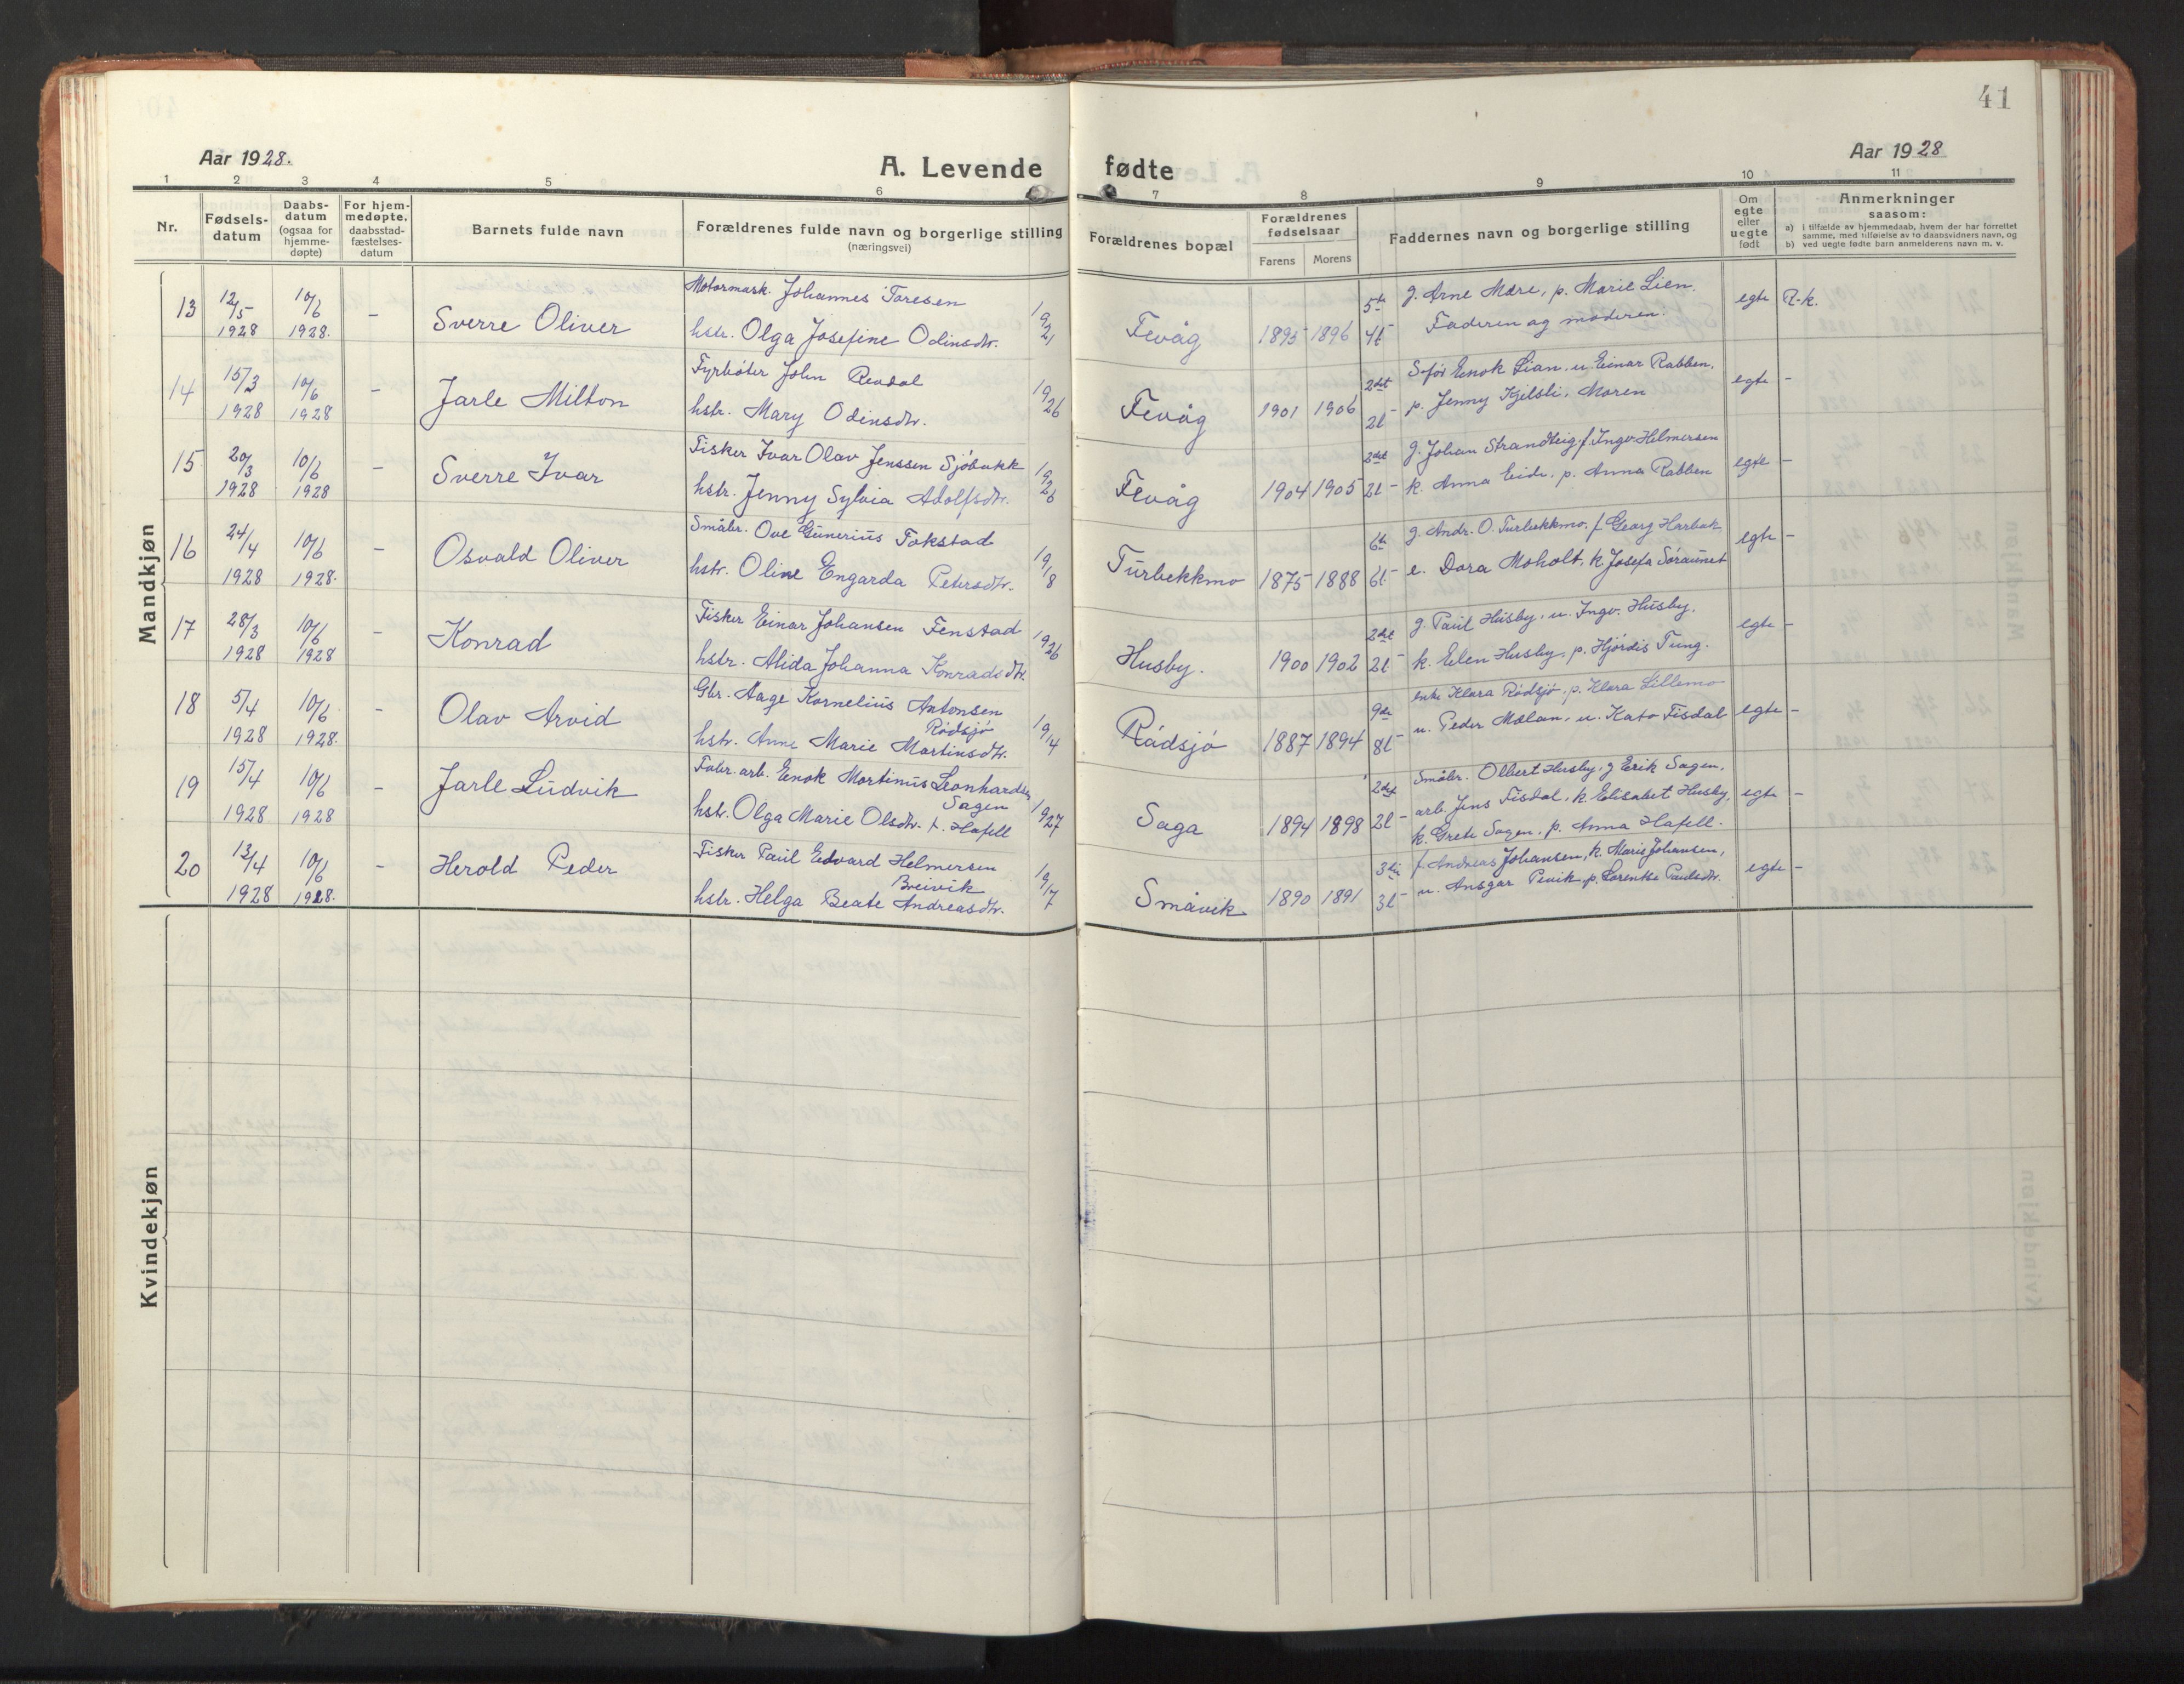 41
Aar 1928.
A. Levende fødte
Aar 1928
1 2 3 4 5 6 7 8 9 10 11
Nr.
Fødsels-
datum
Daabs-
datum
(ogsaa for
hjemme-
døpte)
For hjem-
medøpte,
daabsstad-
fæstelses-
datum
Barnets fulde navn
Forældrenes fulde navn og borgerlige stilling
(næringsvei)
Forældrenes bopæl
Forældrenes
fødselsaar
Farens Morens
Faddernes navn og borgerlige stilling
Om
egte
eller
uegte
født
Anmerkninger
saasom:
a) i tilfælde av hjemmedaab, hvem der har forrettet
samme, med tilføielse av to daabsvidners navn, og
b) ved uegte fødte barn anmelderens navn m. v.
Mandkjøn
13 12/5 1928 10/6 1928. - Sverre Oliver
Motormask. Johannes Toresen
hstr. Olga Josefine Odinsdtr. 1921
Fevåg 1895 1896 5te 4l -
g. Arne Mære, p. Marie Lien.
Faderen og moderen.
egte R-k.
14 15/3 1928 10/6 1928 - Jarle Milton
Fyrbøter John Revdal
hstr. Mary Odinsdtr. 1926
Fevåg 1901 1906 2det 2l -
Enok Lian, u. Einar Rabben,
p. Jenny Kjelsli, Moren
egte -
15 20/3 1928 10/6 1928 - Sverre Ivar
Fisker Ivar Olav Jenssen Sjöbakk
hstr. Jenny Sylvia Adolfsdtr. 1926
Fevåg 1904 1905 2det 2l -
g. Johan Strandteig, f. Ingv. Helmersen
k. Anna Eide, p. Anna Rabben
egte -
16 24/4 1928 10/6 1928. - Osvald Oliver
Småbr. Ove Gunerius Fokstad
hstr. Oline Engarda Petersdtr. 1918
Turbekkmo 1875 1888 6te 6l -
g. Andr. O. Turbekkmo, f. Georg Harbak
e. Dora Moholt, k. Josefa Søraunet
egte -
17 28/3 1928 10/6 1928 - Konrad
Fisker Einar Johansen Fenstad
hstr. Alida Johanna Konradsdtr. 1926
Husby. 1900 1902 2det 2l -
g. Paul Husby, u. Ingv. Husby.
k. Elen Husby, p. Hjördis Tung.
egte -
18 5/4 1928 10/6 1928. - Olav Arvid
Gbr. Aage Kornelius Antonsen
Rödsjö
hstr. Anne Marie Martinsdtr. 1914
Rödsjö 1887 1894 9de 8l -
enke Klara Rödsjö, p. Klara Lillemo
u. Peder Mælan, u. Kato Fisdal
egte -
19 15/4 1928 10/6 1928 - Jarle Ludvik
Fabr. arb. Enok Martinus Leonhardsen
Sagen
hstr. Olga Marie Olsdtr. f. Hafell 1927
Saga 1894 1898 2det 2l -
Småbr. Olbert Husby, g Erik Sagen,
arb. Jens Fisdal, k. Elisabet Husby,
k. Grete Sagen, p. Anna Hafell.
egte -
20 13/4 1928 10/6 1928. - Herold Peder
Fisker Paul Edvard Helmersen
Breivik
hstr. Helga Beate Andreasdtr. 1917
Småvik 1890 1891 3die 3l -
f. Andreas Johansen, k. Marie Johansen,
u. Ansgar Pevik, p. Lorentse Paulsdtr.
egte -
Kvindekjøn